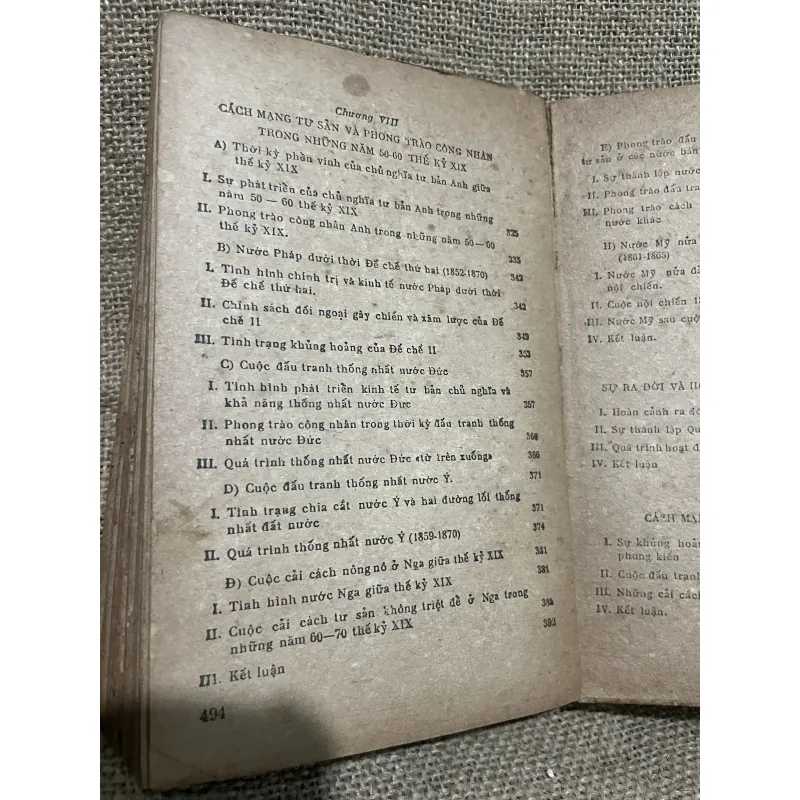 Chương VIII
CÁCH MẠNG TƯ SẢN VÀ PHONG TRÀO CÔNG NHÂN
TRONG NHỮNG NĂM 50-60 THẾ KỶ XIX
A) Thời kỳ phồn vinh của chủ nghĩa tư bản Anh giữa
thế kỷ XIX
I. Sự phát triển của chủ nghĩa tư bản Anh trong những
năm 50 — 60 thế kỷ XIX 325
II. Phong trào công nhân Anh trong những năm 50—60
thế kỷ XIX. 335
B) Nước Pháp dưới thời Đế chế thứ hai (1852-1870) 342
I. Tình hình chính trị và kinh tế nước Pháp dưới thời
Đế chế thứ hai. 342
II. Chính sách đối ngoại gây chiến và xâm lược của Đế
chế II 349
III. Tình trạng khủng hoảng của Đế chế II 353
C) Cuộc đấu tranh thống nhất nước Đức 357
I. Tình hình phát triển kinh tế tư bản chủ nghĩa và
khả năng thống nhất nước Đức 357
II. Phong trào công nhân trong thời kỳ đấu tranh thống
nhất nước Đức 360
III. Quá trình thống nhất nước Đức «từ trên xuống» 366
D) Cuộc đấu tranh thống nhất nước Ý. 371
I. Tình trạng chia cắt nước Ý và hai đường lối thống
nhất đất nước 371
II. Quá trình thống nhất nước Ý (1859-1870) 374
Đ) Cuộc cải cách nông nô ở Nga giữa thế kỷ XIX 381
I. Tình hình nước Nga giữa thế kỷ XIX 381
II. Cuộc cải cách tư sản không triệt để ở Nga trong
những năm 60—70 thế kỷ XIX
III. Kết luận 392
494
E) Phong trào đấu
tư sản ở các nước bán
I. Sự thành lập nước
II. Phong trào đấu tra
III. Phong trào cách
nước khác
H) Nước Mỹ nửa
(1861-1865)
I. Nước Mỹ nửa đầ
nội chiến.
II. Cuộc nội chiến 18
III. Nước Mỹ sau cuộ
IV. Kết luận.
SỰ RA ĐỜI VÀ
I. Hoàn cảnh ra đờ
II. Sự thành lập Qu
III. Quá trình hoạt đ
IV. Kết luận
CÁCH MẠN
I. Sự khủng hoản
phong kiến
II. Cuộc đấu tranh
III. Những cải cách
IV. Kết luận.